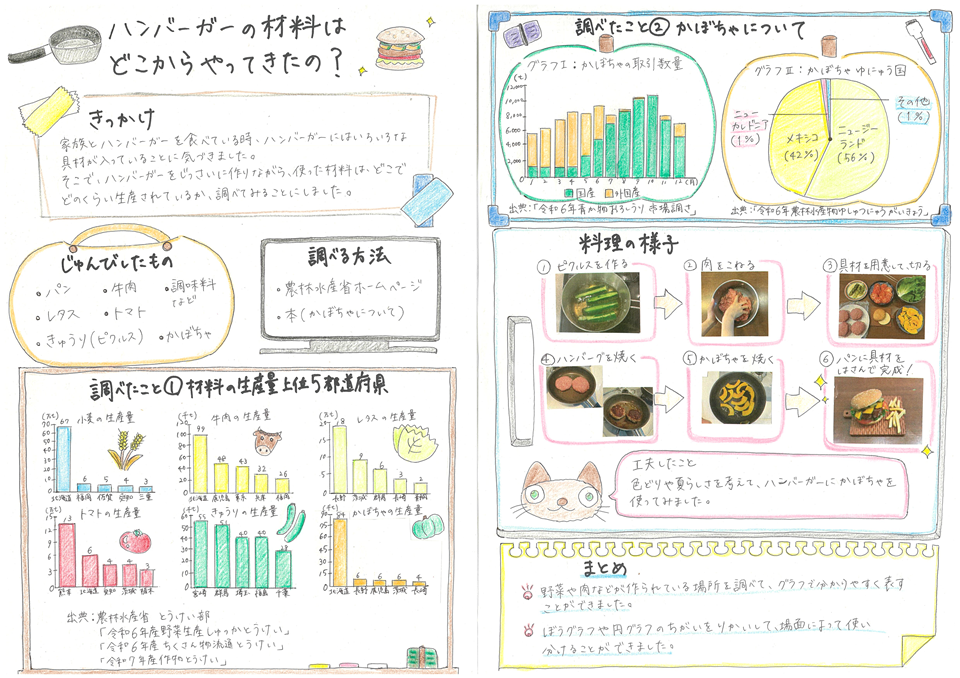 ハンバーガーの材料は
どこからやってきたの？
きっかけ
家族とハンバーガーを食べている時、ハンバーガーにはいろいろな
具材が入っていることに気づきました。
そこで、ハンバーガーをじっさいに作りながら、使った材料は、どこで
どのくらい生産されているか、調べてみることにしました。
じゅんびしたもの
・パン ・牛肉 ・調味料
など
・レタス ・トマト
・きゅうり(ピクルス) ・かぼちゃ
調べる方法
・農林水産省ホームページ
・本(かぼちゃについて)
調べたこと① 材料の生産量上位5都道府県
小麦の生産量
67 6 5 4 3
北海道 福岡 佐賀 愛知 三重
牛肉の生産量
99 48 43 32 26
北海道 鹿児島 東京 兵庫 福岡
レタスの生産量
18 9 6 3 2
長野 茨城 群馬 長崎 静岡
トマトの生産量
13 6 4 4 3
熊本 北海道 愛知 茨城 栃木
きゅうりの生産量
55 51 40 40 28
宮崎 群馬 埼玉 福島 千葉
かぼちゃの生産量
84 6 6 6 4
北海道 長野 鹿児島 茨城 長崎
出典：農林水産省 とうけい部
「令和6年産野菜生産しゅっかとうけい」
「令和6年産ちくさん物流通とうけい」
「令和7年産作物とうけい」
調べたこと② かぼちゃについて
グラフⅠ：かぼちゃの取引数量
(t)
12,000
10,000
8,000
6,000
4,000
2,000
0
1 2 3 4 5 6 7 8 9 10 11 12 (月)
国産 外国産
出典：「令和6年青か物おろしうり市場調さ」
グラフⅡ：かぼちゃ ゆにゅう国
ニュー
カレドニア
(1%)
その他
(1%)
メキシコ
(42%)
ニュージー
ランド
(56%)
出典：「令和6年農林水産物ゆしゅつにゅうがいきょう」
料理の様子
① ピクルスを作る
② 肉をこねる
③ 具材を用意して、切る
④ ハンバーグを焼く
⑤ かぼちゃを焼く
⑥ パンに具材を
はさんで完成！
工夫したこと
色どりや夏らしさを考えて、ハンバーガーにかぼちゃを
使ってみました。
まとめ
野菜や肉などが作られている場所を調べて、グラフで分かりやすく表す
ことができました。
ぼうグラフや円グラフのちがいをりかいして、場面によって使い
分けることができました。